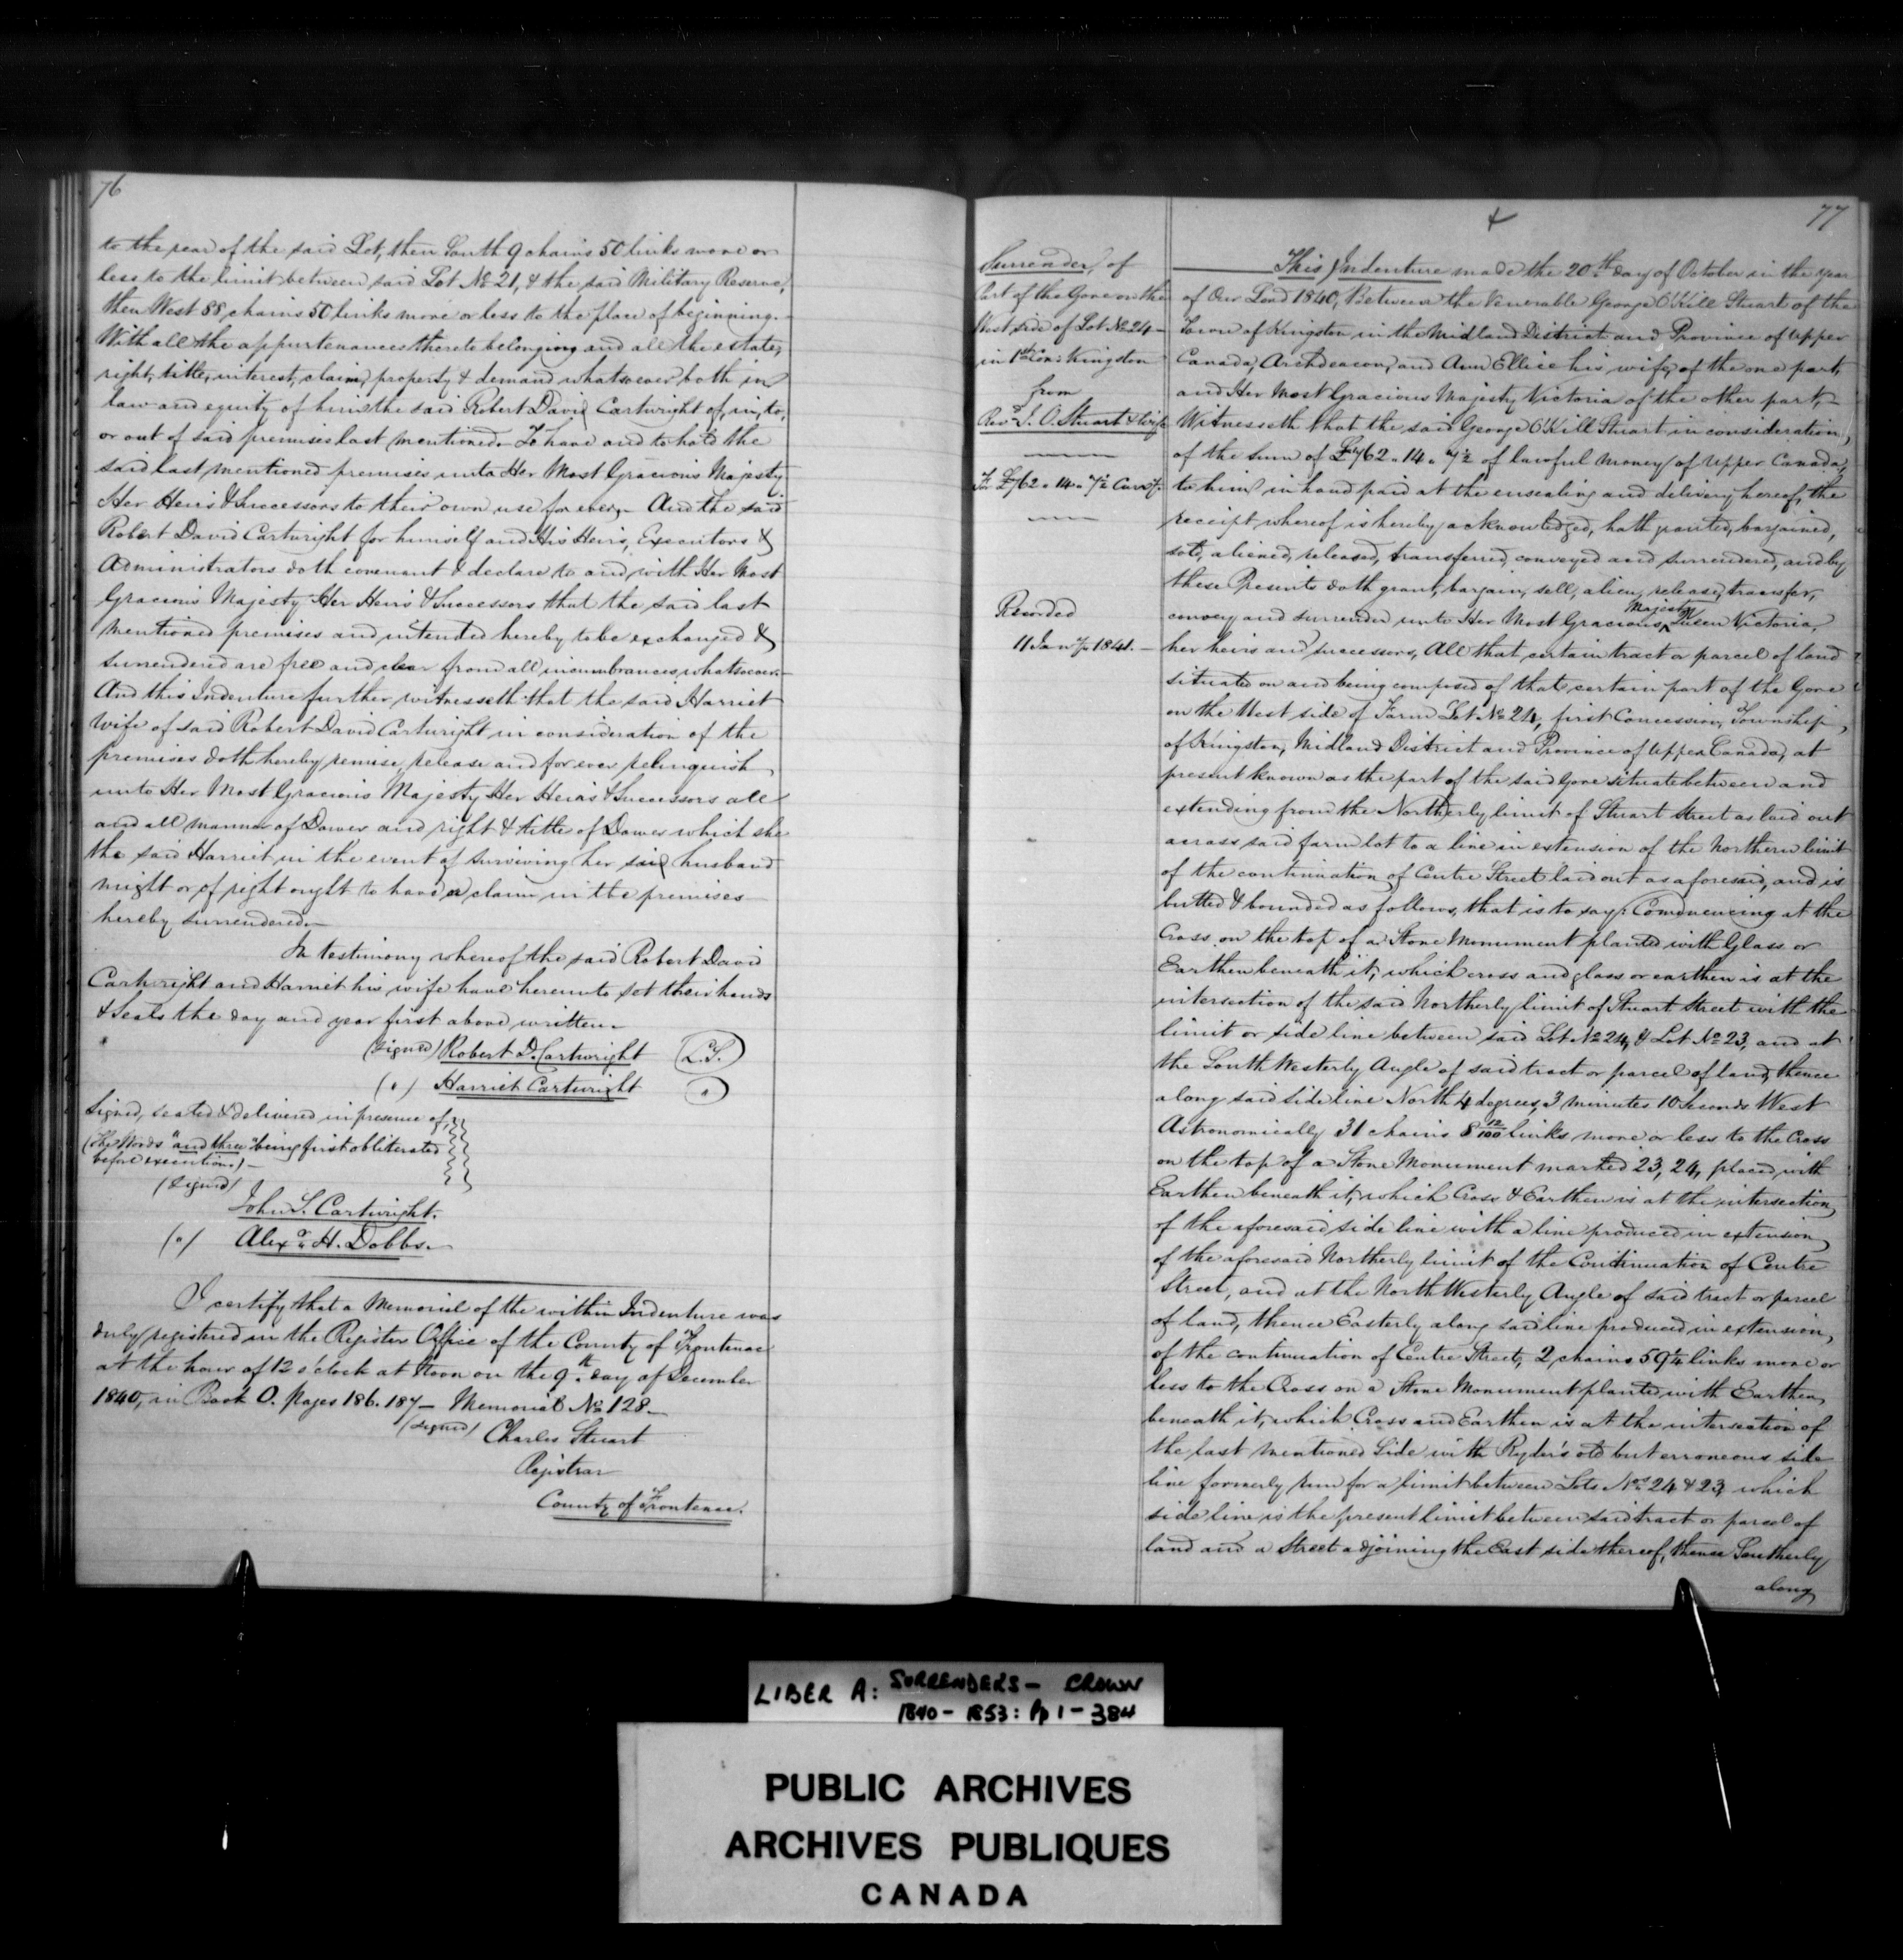 76
to the rear of the said Lot, then South 9 chains 50 links more or
less to the limit between said Lot No 21, & the said Military Reserve,
then West 88 chains 50 links more or less to the place of beginning.
With all the appurtenances thereto belonging and all the estate,
right, title, interest, claim, property & demand whatsoever both in
law and equity of him the said Robert David Cartwright of, in, to,
or out of said premises last mentioned. To have and to hold the
said last mentioned premises unto Her Most Gracious Majesty
Her Heirs & Successors to their own use for ever. And the said
Robert David Cartwright for himself and His Heirs, Executors &
Administrators doth covenant & declare to and with Her Most
Gracious Majesty Her Heirs & Successors that the said last
mentioned premises and intended hereby to be exchanged &
surrendered are free and clear from all incumbrances whatsoever.
And this Indenture further witnesseth that the said Harriet
Wife of said Robert David Cartwright in consideration of the
premises doth hereby remise, release and for ever relinquish
unto Her Most Gracious Majesty Her Heirs & Successors all
and all manner of Dower and right & title of Dower which she
the said Harriet in the event of surviving her said husband
might or of right ought to have or claim in the premises
hereby surrendered.
In testimony whereof the said Robert David
Cartwright and Harriet his wife have hereunto set their hands
& Seals the day and year first above written.
(signed) Robert D. Cartwright (L.S.)
(") Harriet Cartwright (")
Signed, sealed & delivered in presence of,
(The Words "and three" being first obliterated
before execution.)
(signed)
John S. Cartwright.
(") Alexr H. Dobbs.
I certify that a Memorial of the within Indenture was
duly registered in the Register Office of the County of Frontenac
at the hour of 12 o'clock at Noon on the 9th day of December
1840, in Book O. Pages 186. 187 — Memorial No 128.
(signed) Charles Stuart
Registrar
County of Frontenac.
77
Surrender of
Part of the Gore on the
West side of Lot No 24
in 1st Con: Kingston
from
Revd G. O. Stuart & Wife
For £762 . 14 . 7½ Curr'y.
Recorded
11 Jan'y 1841.
This Indenture made the 20th day of October in the year
of Our Lord 1840, Between the Venerable George O'Kill Stuart of the
Town of Kingston in the Midland District and Province of Upper
Canada, Archdeacon, and Ann Ellice his wife, of the one part,
and Her Most Gracious Majesty Victoria of the other part,
Witnesseth that the said George O'Kill Stuart in consideration
of the sum of £762 . 14 . 7½ of lawful money of Upper Canada
to him in hand paid at the ensealing and delivery hereof, the
receipt whereof is hereby acknowledged, hath granted, bargained,
sold, aliened, released, transferred, conveyed and surrendered, and by
these Presents doth grant, bargain, sell, alien, release, transfer,
convey and surrender unto Her Most Gracious Majesty Queen Victoria,
her heirs and successors, All that certain tract or parcel of land
situated on and being composed of that certain part of the Gore
on the West side of Farm Lot No 24, first Concession, Township
of Kingston, Midland District and Province of Upper Canada, at
present known as the part of the said Gore situate between and
extending from the Northerly limit of Stuart Street as laid out
across said farm lot to a line in extension of the Northern limit
of the continuation of Centre Street laid out as aforesaid, and is
butted & bounded as follows, that is to say: Commencing at the
Cross on the top of a Stone Monument planted with Glass or
Earthen beneath it, which cross and glass or earthen is at the
intersection of the said Northerly limit of Stuart Street with the
limit or side line between said Lot No 24, & Lot No 23, and at
the South Westerly Angle of said tract or parcel of land, thence
along said side line North 4 degrees, 3 minutes 10 Seconds West
Astronomically 31 chains 8 12/100 links more or less to the Cross
on the top of a Stone Monument marked 23, 24, placed with
Earthen beneath it, which Cross & Earthen is at the intersection
of the aforesaid side line with a line produced in extension
of the aforesaid Northerly limit of the Continuation of Centre
Street, and at the North Westerly Angle of said tract or parcel
of land, thence Easterly along said line produced in extension
of the continuation of Centre Street, 2 chains 59¼ links more or
less to the Cross on a Stone Monument planted with Earthen
beneath it, which Cross and Earthen is at the intersection of
the last mentioned Side with Ryder's old but erroneous side
line formerly run for a limit between Lots Nos 24 & 23, which
side line is the present limit between said tract or parcel of
land and a Street adjoining the East side thereof, thence Southerly
along
LIBER A: SURRENDERS - CROWN
1840 - 1853: Pp 1 - 384
PUBLIC ARCHIVES
ARCHIVES PUBLIQUES
CANADA